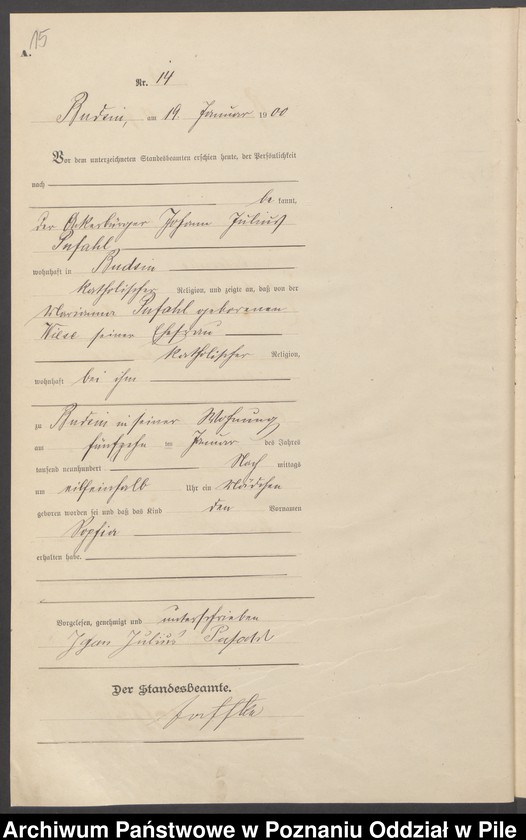 15
A.
Nr. 14
Budsin, am 19. Januar 1900
Vor dem unterzeichneten Standesbeamten erschien heute, der Persönlichkeit
nach
be kannt,
der Ackerbürger Johann Julius
Pufahl
wohnhaft in Budsin
katholischer Religion, und zeigte an, daß von der
Marianna Pufahl geborenen
Wiese seiner Ehefrau
katholischer Religion,
wohnhaft bei ihm
zu Budsin in seiner Wohnung
am fünfzehn ten Januar des Jahres
tausend neunhundert Nach mittags
um eilfeinhalb Uhr ein Mädchen
geboren worden sei und daß das Kind den Vornamen
Sophia
erhalten habe.
Vorgelesen, genehmigt und unterschrieben
Julius
Der Standesbeamte.
Archiwum Państwowe w Poznaniu Oddział w Pile